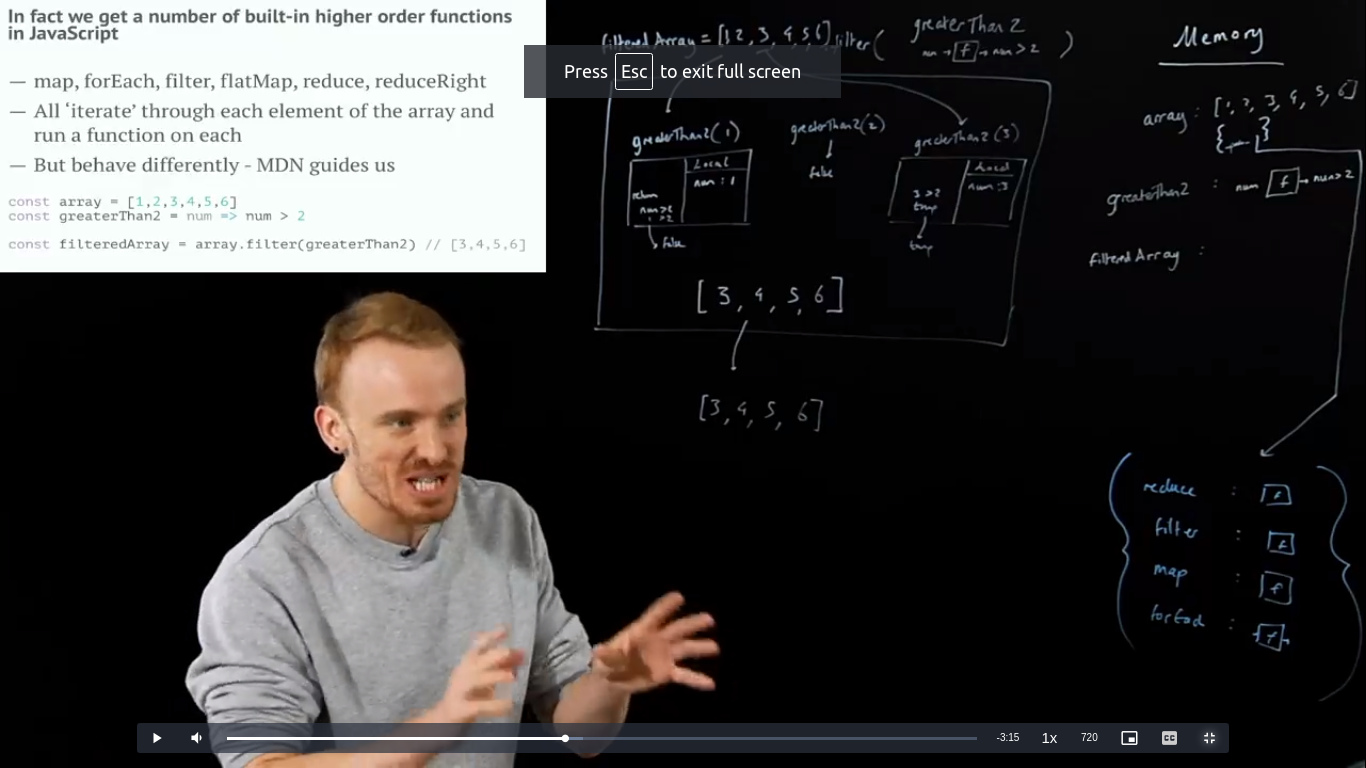 In fact we get a number of built-in higher order functions
in JavaScript
— map, forEach, filter, flatMap, reduce, reduceRight
— All ‘iterate’ through each element of the array and
run a function on each
— But behave differently - MDN guides us
const array = [1,2,3,4,5,6]
const greaterThan2 = num => num > 2
const filteredArray = array.filter(greaterThan2) // [3,4,5,6]
Press Esc to exit full screen
filteredArray = [1 2, 3, 4, 5, 6].filter( greaterThan2 )
num → f → num > 2
greaterThan2(1)
Local
num : 1
return
num > 2
1 > 2
false
greaterThan2(2)
false
greaterThan2(3)
Local
num : 3
3 > 2
true
true
[ 3, 4, 5, 6 ]
[3, 4, 5, 6]
Memory
array : [1, 2, 3, 4, 5, 6]
greaterThan2 : num f → num > 2
filteredArray :
reduce : f
filter : f
map : f
forEach : f
-3:15
1x
720
CC